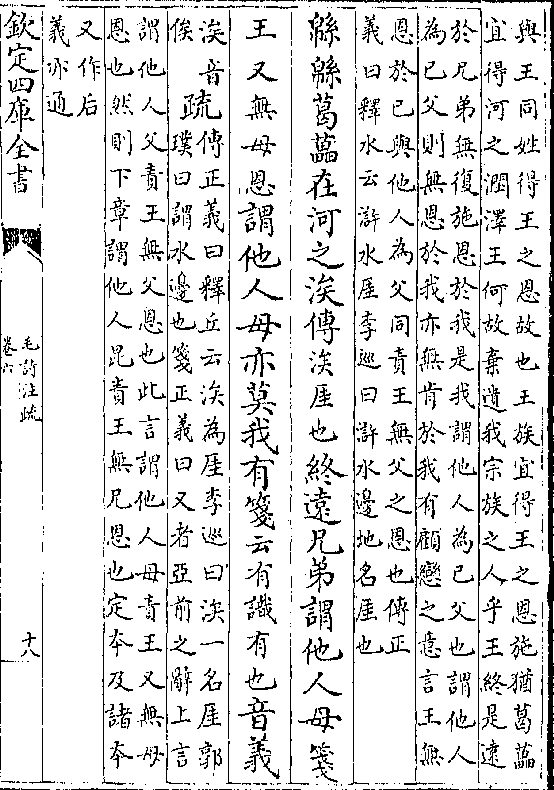 與王同姓得王之恩故也王族宜得王之恩施猶葛藟
宜得河之潤澤王何故棄遺我宗族之人乎王終是遠
於兄弟無復施恩於我是我謂他人為己父也謂他人
為己父則無恩於我亦無肯於我有顧戀之意言王無
恩於己與他人為父同責王無父之恩也傳正
義曰釋水云滸水厓李巡曰滸水邊地名厓也
緜緜葛藟在河之涘傳涘厓也終遠兄弟謂他人母箋
王又無母恩謂他人母亦莫我有箋云有識有也音義
涘音
俟
疏
傳正義曰釋丘云涘為厓李巡曰涘一名厓郭
璞曰謂水邊也箋正義曰又者亞前之辭上言
謂他人父責王無父恩也此言謂他人母責王又無母
恩也然則下章謂他人昆責王無兄恩也定本及諸本
又作后
義亦通
欽定四庫全書
毛詩注疏
卷六
十八